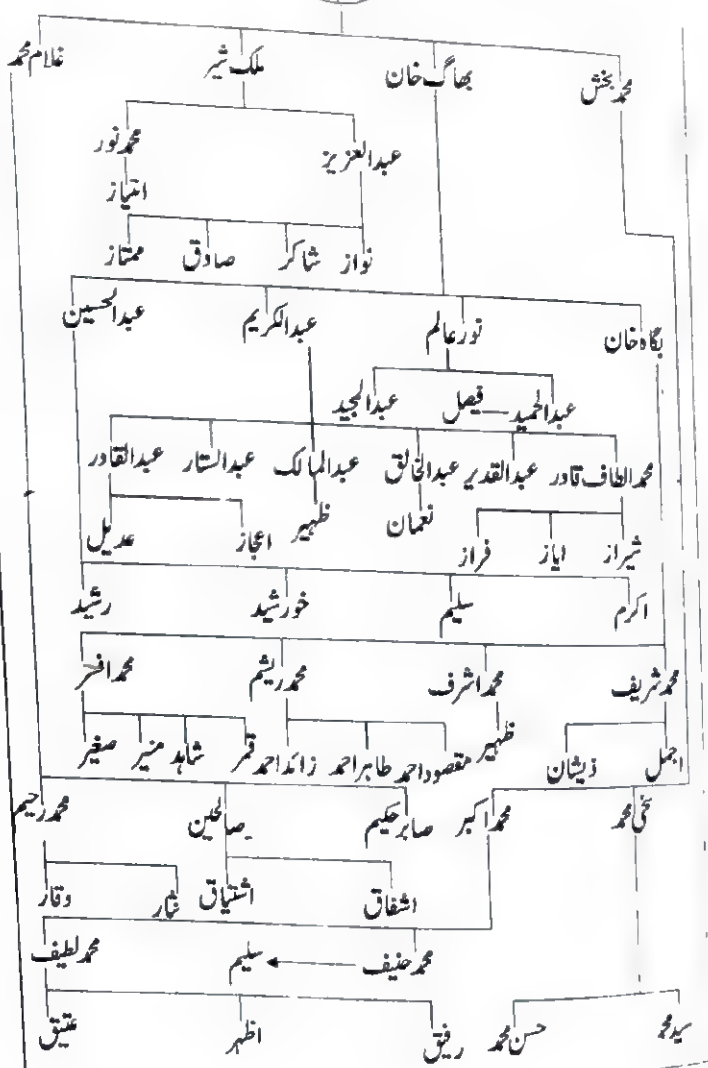 محمد بخش بھاگ خان ملک شیر غلام محمد
عبدالعزیز محمد نور
امتیاز
نواز شاکر صادق ممتاز
بگاہ خان نور عالم عبدالکریم عبدالحسین
عبدالحمید فیصل عبدالمجید
محمد الطاف قادر عبدالقدیر عبدالخالق عبدالمالک عبدالستار عبدالقادر
نعمان ظہیر
شیراز ایاز فراز اعجاز عدیل
اکرم سلیم خورشید رشید
محمد شریف محمد اشرف محمد ریشم محمد افسر
ظہیر
اجمل ذیشان مقصود احمد طاہر احمد زائد احمد قمر شاہد منیر صغیر
سخی محمد محمد اکبر صابر حکیم صالحین محمد رحیم
اشفاق اشتیاق نثار وقار
محمد حنیف سلیم محمد لطیف
سید محمد حسن محمد رفیق اظہر عتیق